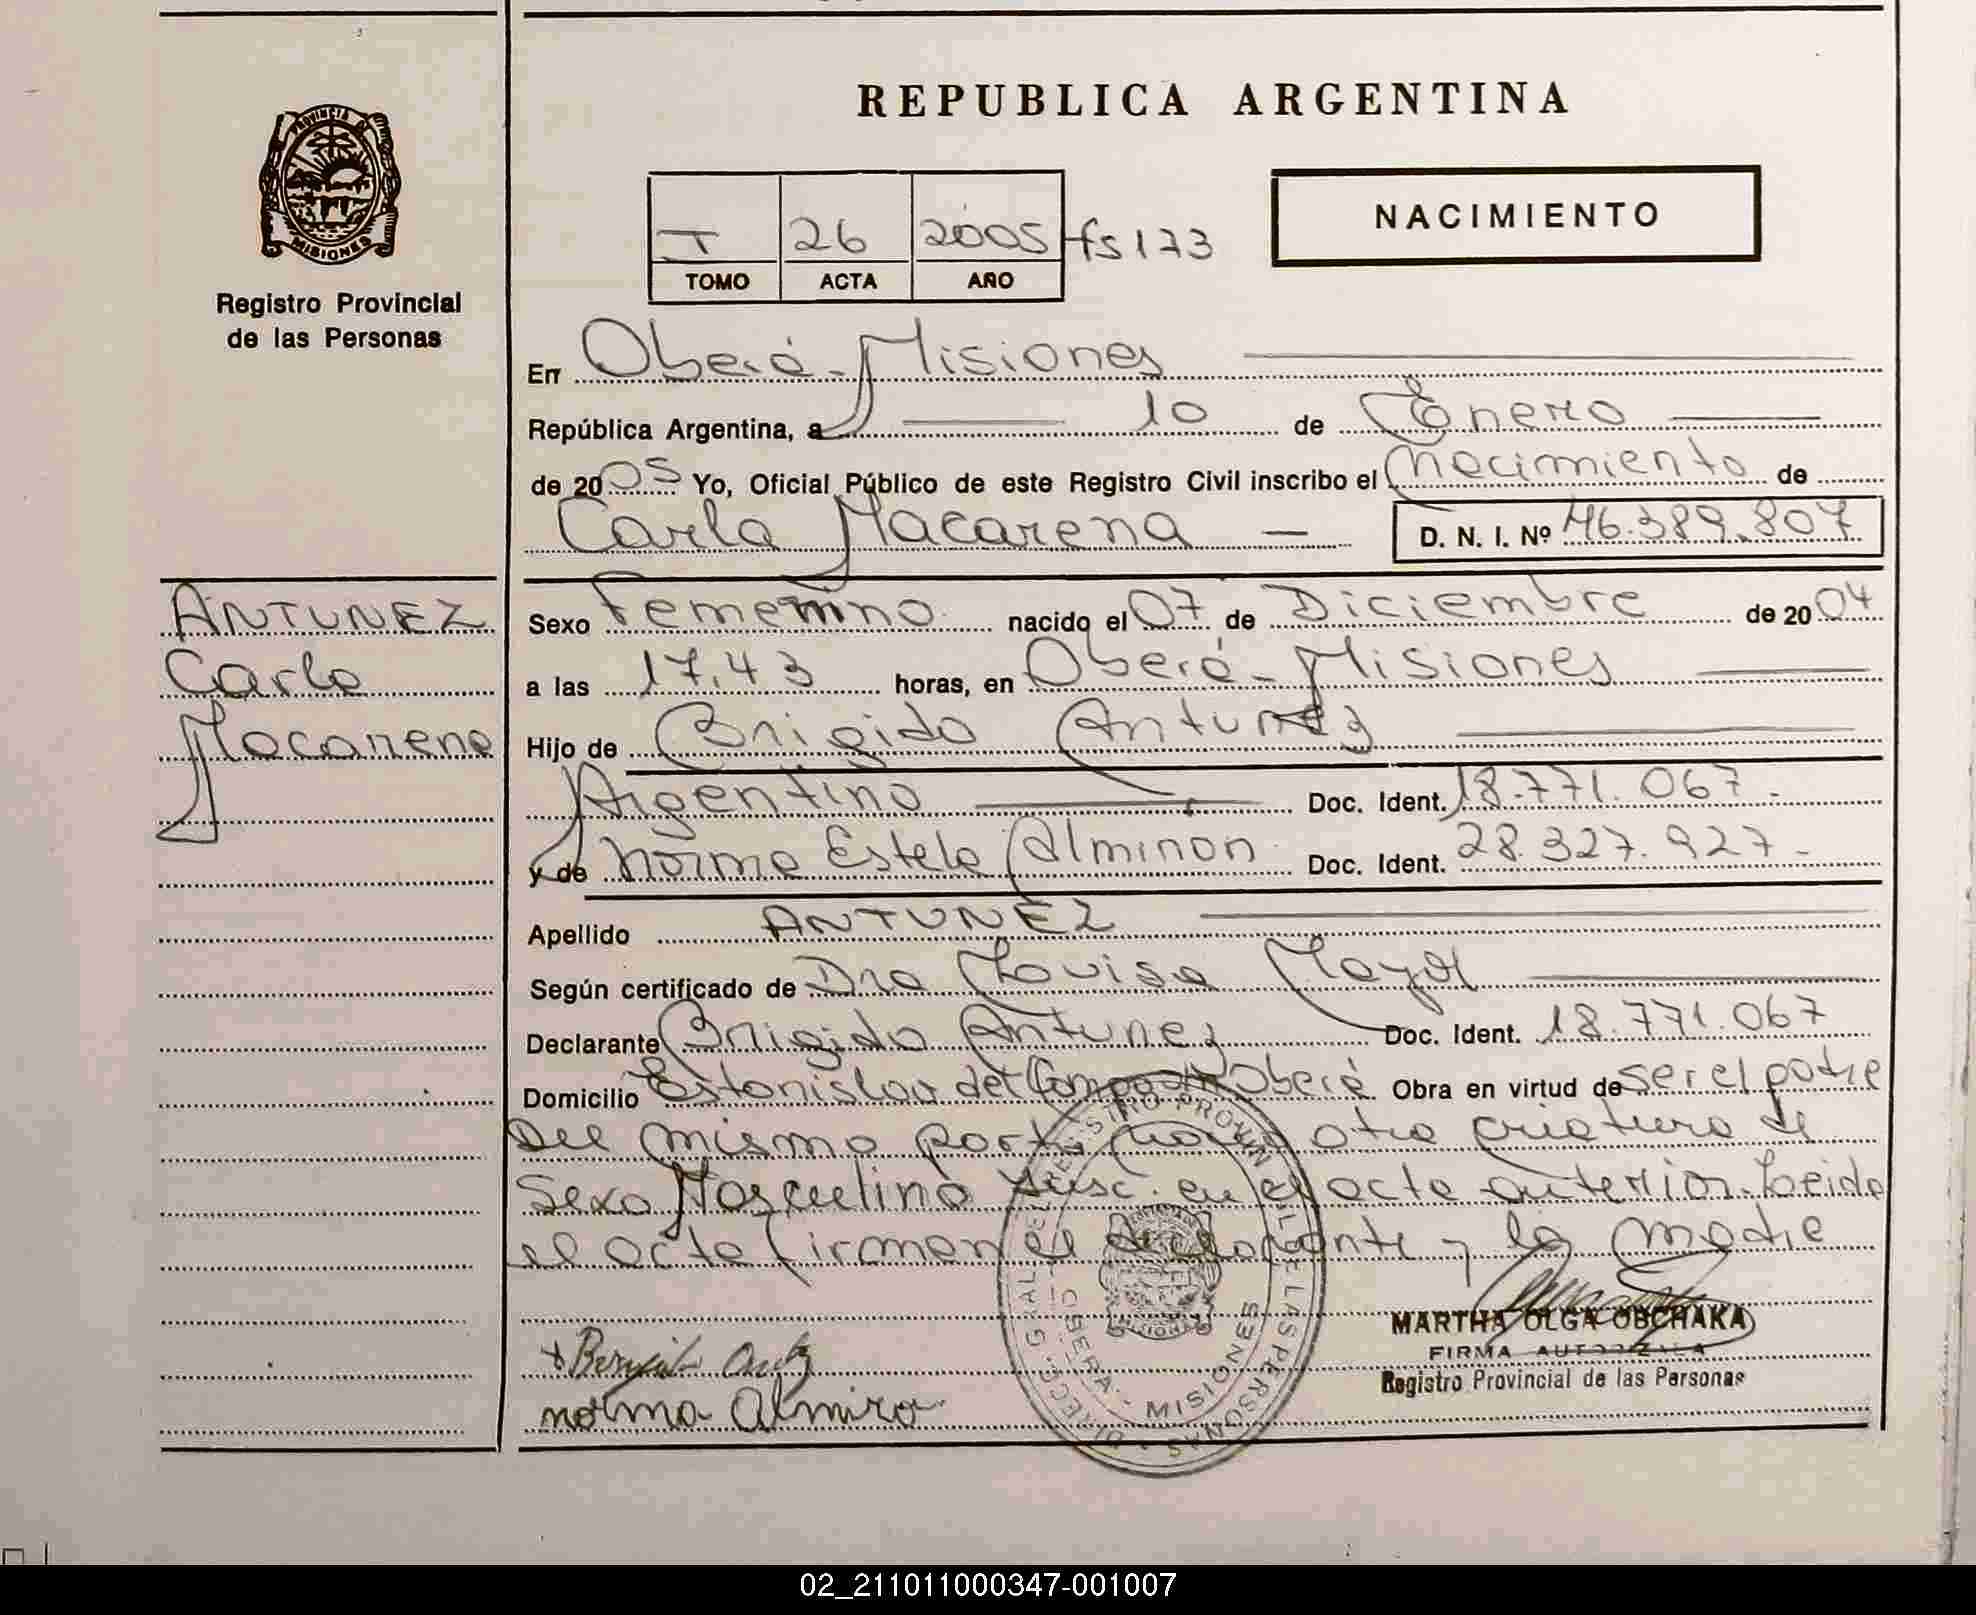 PROVINCIA DE
MISIONES
Registro Provincial
de las Personas
REPUBLICA ARGENTINA
NACIMIENTO
I 26 2005 fs 173
TOMO ACTA AÑO
En Oberá - Misiones
República Argentina, a 10 de Enero
de 2005 Yo, Oficial Público de este Registro Civil inscribo el nacimiento de
Carla Macarena
D. N. I. Nº 46.389.807
ANTUNEZ
Carla
Macarena
Sexo Femenino nacido el 07 de Diciembre de 2004
a las 17,43 horas, en Oberá - Misiones
Hijo de Brigido Antunez
Argentino Doc. Ident. 18.771.067.
y de Norma Estela Almiron Doc. Ident. 28.327.927-
Apellido ANTUNEZ
Según certificado de Dra Louisa
Declarante Brigido Antunez Doc. Ident. 18.771.067
Domicilio Estanislao del Campo Oberá Obra en virtud de ser el padre
Del mismo parto otra criatura de
Sexo Masculino Insc. en el acta anterior. Leida
el acta firman el declarante y la madre
norma Almiro
MARTHA OLGA OBCHAKA
FIRMA AUTORIZADA
Registro Provincial de las Personas
MISIONES
02_211011000347-001007